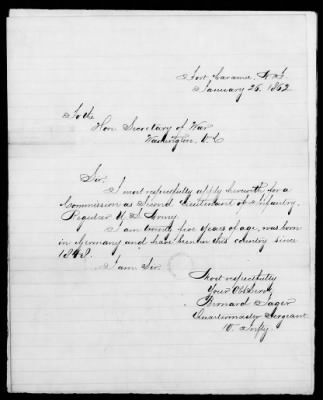 Fort Laramie, N.T.
January 25, 1862
To the
Hon. Secretary of War
Washington, D.C.
Sir,
I most respectfully apply herewith for a
Commission as Second Lieutenant of Infantry,
Regular U. S. Army.
I am twenty five years of age, was born
in Germany and have been in this country since
1848.
I am Sir,
Most respectfully
Your Obt Servt
Bernard Sager
Quartermaster Sergeant
Infty